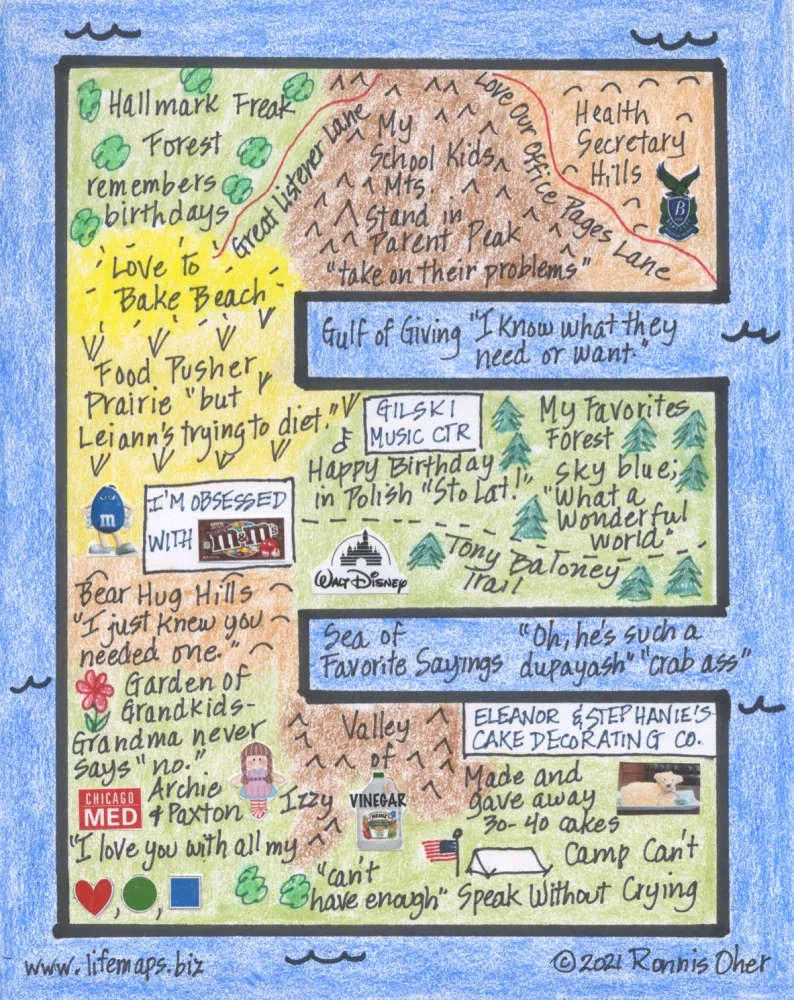 Hallmark Freak
Forest
remembers
birthdays
Great Listener Lane
My
School Kids
Mts
Stand in
Parent Peak
"take on their problems"
Love Our Office Pages Lane
Health
Secretary
Hills
B
Love To
Bake Beach
Gulf of Giving "I know what they
need or want."
Food Pusher
Prairie "but
Leiann's trying to diet."
GILSKI
MUSIC CTR
Happy Birthday
in Polish "Sto Lat!"
My Favorites
Forest
sky blue;
"What a
wonderful
world"
m
I'M OBSESSED
WITH m&m's
WALT DISNEY
Tony Baloney
Trail
Bear Hug Hills
"I just knew you
needed one."
Sea of
Favorite Sayings
"Oh, he's such a
dupayash" "crab ass"
Garden of
Grandkids-
Grandma never
says "no."
Archie
& Paxton
Izzy
CHICAGO
MED
"I love you with all my
, ,
Valley
of
VINEGAR
HEINZ
"can't
have enough"
ELEANOR & STEPHANIE'S
CAKE DECORATING CO.
Made and
gave away
30-40 cakes
Camp Can't
Speak Without Crying
www.lifemaps.biz
©2021 Ronnis Oher